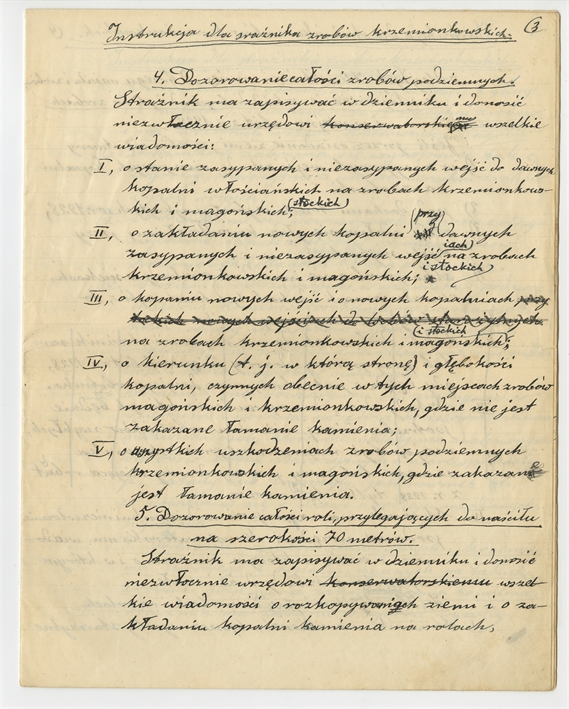 3
Instrukcja dla strażnika zrobów krzemionkowskich.
4. Dozorowanie całości zrobów podziemnych.
Strażnik ma zapisywać w dzienniku i donosić
niezwłocznie urzędowi konserwatorskiemu wszelkie
wiadomości:
I, o stanie zasypanych i niezasypanych wejść do dawnych
kopalni włościańskich na zrobach krzemionkow-
skich i magońskich; (stockich)
II, o zakładaniu nowych kopalni przy dawnych
zasypanych i niezasypanych wejściach na zrobach
krzemionkowskich i magońskich; i stockich
III, o kopaniu nowych wejść i o nowych kopalniach
na zrobach krzemionkowskich i magońskich; i stockich
IV, o kierunku (t. j. w którą stronę) i głębokości
kopalni, czynnych obecnie w tych miejscach zrobów
magońskich i krzemionkowskich, gdzie nie jest
zakazane łamanie kamienia;
V, o wszystkich uszkodzeniach zrobów podziemnych
krzemionkowskich i magońskich, gdzie zakazane
jest łamanie kamienia.
5. Dozorowanie całości roli, przylegających do
na szerokości 70 metrów.
Strażnik ma zapisywać w dzienniku i donosić
niezwłocznie urzędowi konserwatorskiemu wszel-
kie wiadomości o rozkopywaniach ziemi i o za-
kładaniu kopalni kamienia na rolach,